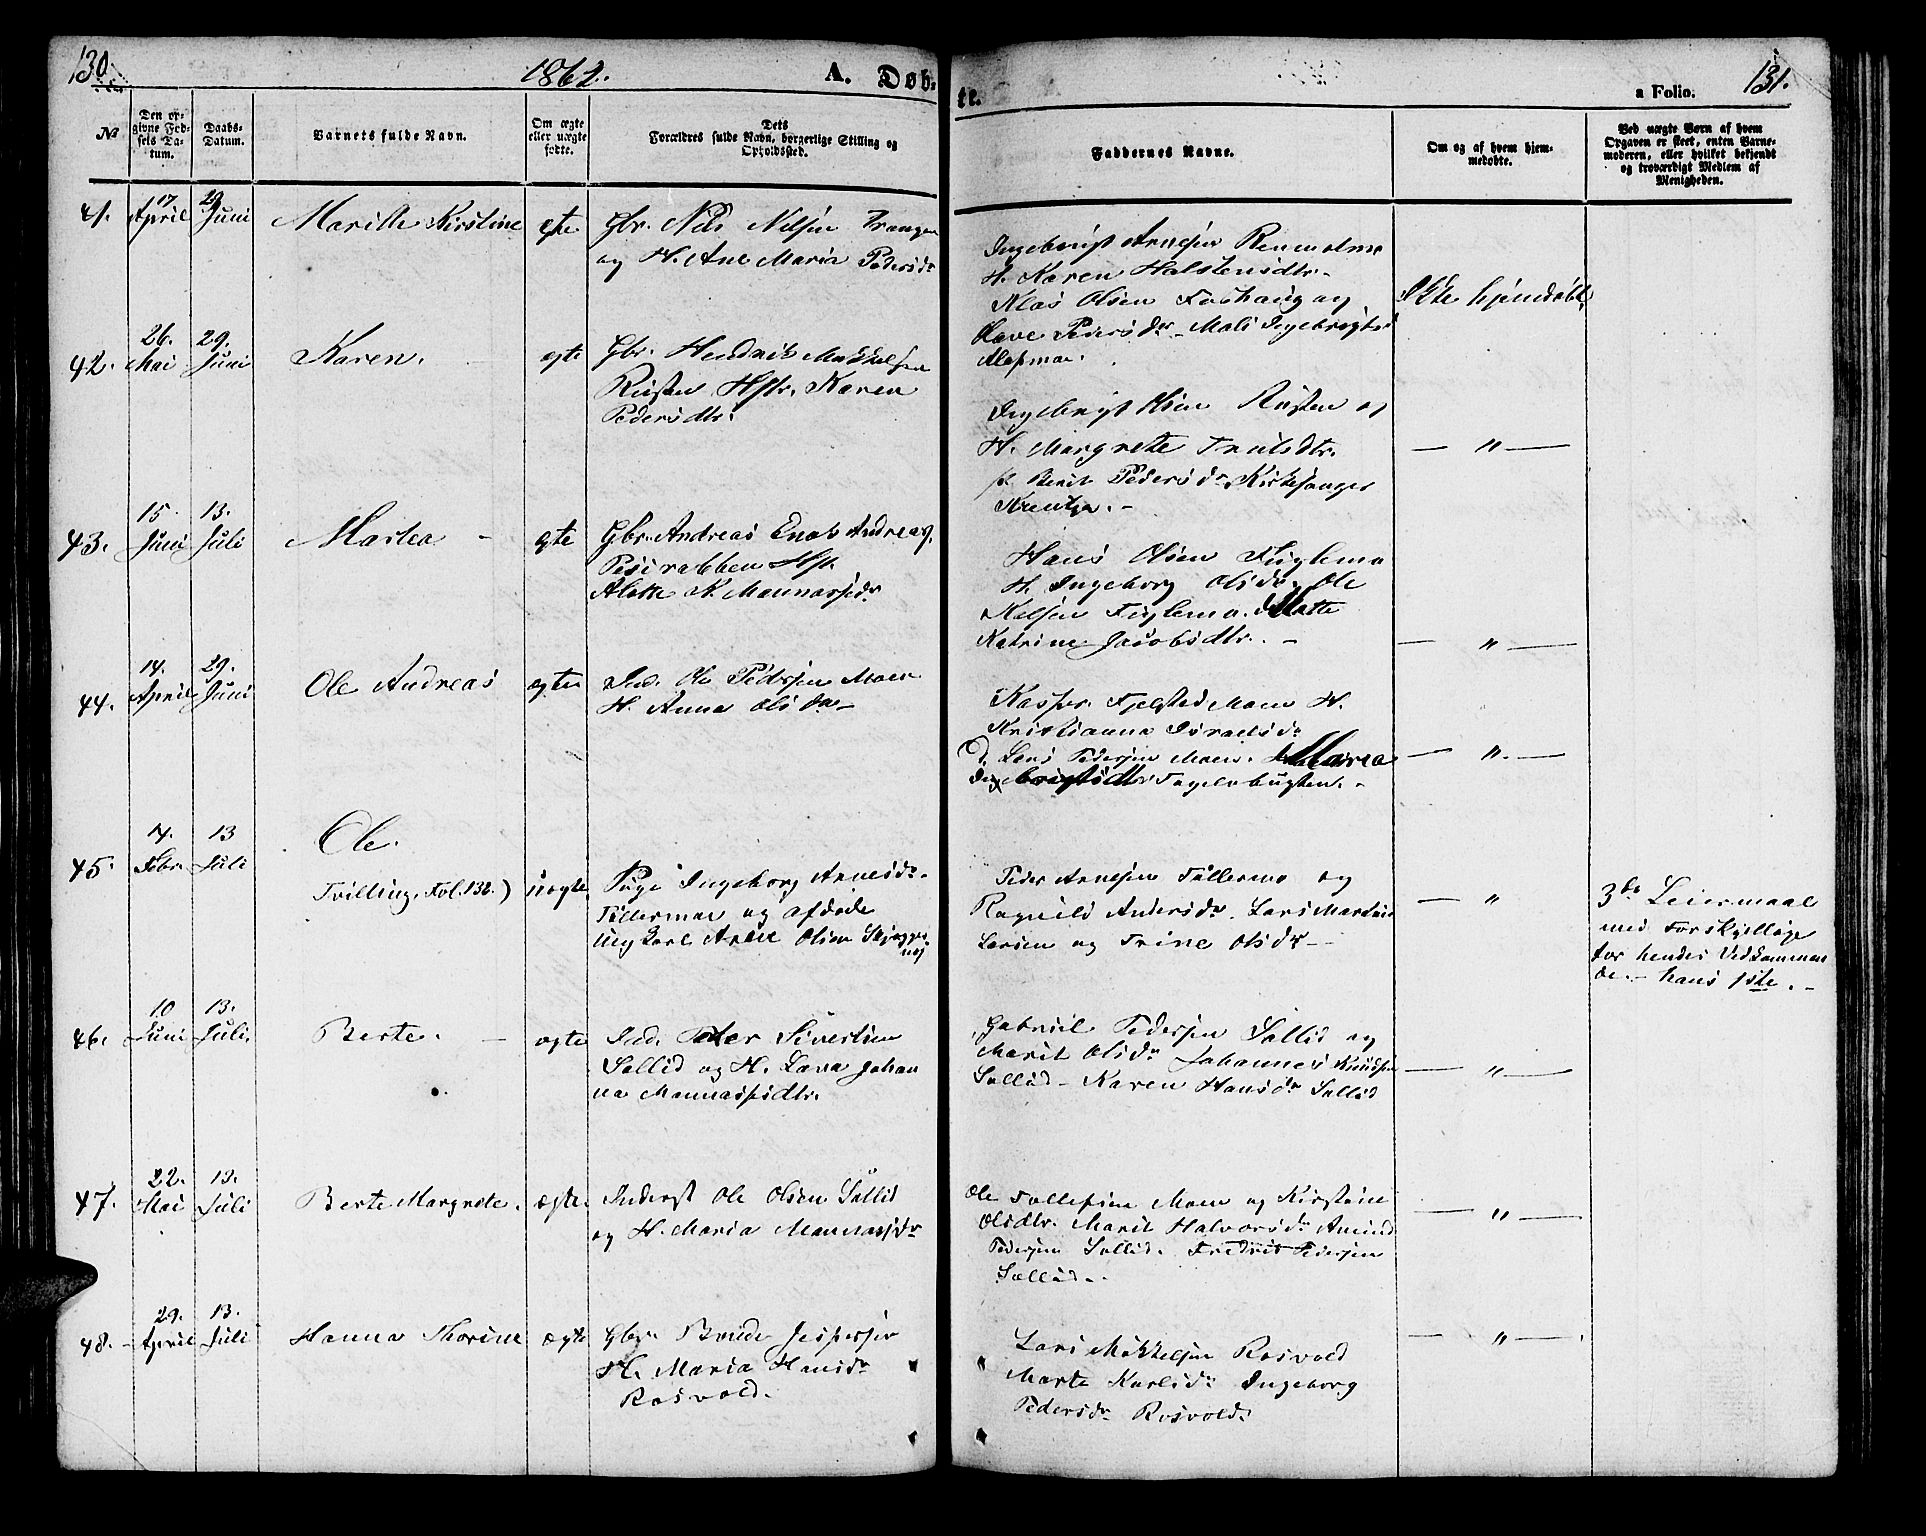 130.
1862.
A. Døb-
te.
a Folio.
131.
No
Den or-
givne Fød-
sels Da-
tum.
Daabs-
Datum.
Barnets fulde Navn.
Om ægte
eller uægte
fødte.
Dets
Forældres fulde Navn, borgerlige Stilling og
Opholdssted.
Faddernes Navne.
Om og af hvem hjem-
medøbte.
Ved uægte Børn af hvem
Opgaven er skeet, enten Barne-
moderen, eller hvilket bekjendt
og troværdigt Medlem af
Menigheden.
41.
17
April
29
Juni
Marith Kirstine
egte
Gbr. Nils Nilsen Trangen
og H. Ane Maria Pedersdr
Ingebrigt Arnesen
H. Karen Halstensdtr.
Klas Olsen og
Pedersdr Mali Ingebrigts
Ikke hjemdøbt.
42.
26.
Mai
29.
Juni
Karen.
egte
Gbr. Hendrik Mikkelsen
Risten Hstr. Karen
Pedersdtr.
Ingebrigt Olsen Risten og
H. Margrete Trulsdtr.
Berit Pedersdr Kirkesanger
— " —
43.
15.
Juni
13.
Juli
Martea -
egte
Gbr. Andreas Enok Andreas.
Hstr.
Aleth K. Mannassedr
Hans Olsen Fuglemo
H. Ingeborg Olsdr. Ole
Nelsen Fuglemo. Mette
Katrine Jacobsdtr. -
— " —
44.
14.
April
29.
Juni
Ole Andreas
egte
Ind. Ole Pedersen Moen
H. Anna Olsdr -
Kasper Fjelsted Moen H.
Kristianna Israelsdr
Lars Pedersen Moen. Maria
Ingebrigtsdtr Fagelebugten. -
— " —
45.
14.
Febr.
13
Juli
Ole.
Tvilling, Fol. 132.)
uegte
Pige Ingeborg Arnesdr.
Tillermoe og afdøde
Ungkarl Arne Olsen
Peder Arnesen Tillermo og
Ragnild Andersdr. Lars Martin
Larsen og Trine Olsdr -
— "
3de Leiermaal
med Forskjellige
for hendes Vedkommen
de. - hans 1ste. -
46.
10
Juni
13.
Juli.
Berte. -
egte
Ind. Peter Sivertsen
Sollid og H. Lava Johan
na Mannassesdtr.
Gabriel Pedersen Sollid og
Marit Olsdr Johannes Knudsen
Sollid - Karen Hansdr Sollid
— " —
47.
22.
Mai
13.
Juli
Berte Margrete.
ægte.
Inderst Ole Olsen Sollid
og H. Maria Mannassdr
Ole Tollefsen Moen og Kirstine
Olsdtr. Marit Halvorsdr Amund
Pedersen Sollid. Fredrik Pedersen
Sollid. -
— " —
48. -
29.
April
13.
Juli
Hanna Thorine
ægte
Gbr. Bernt Jespersen
H. Maria Hansdr
Rosvold.
Lars Mikkelsen Rosvold
Marte Karlsdr Ingeborg
Pedersdr Rosvold.
— " —